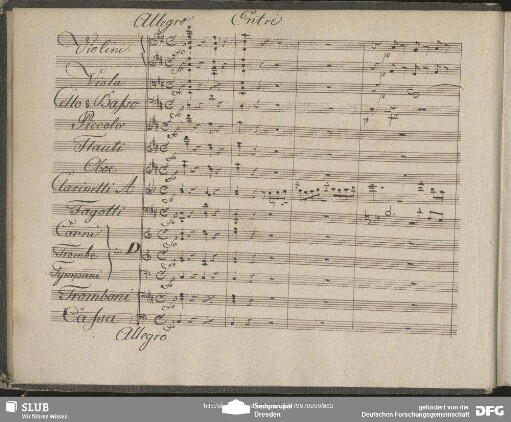 Allegro Entré
Violini
Viola
Cello & Basso
Piccolo
Flauti
Oboe
Clarinetti A
Fagotti
Corni
Trombe in D
Tympani
Tromboni
Cassa
Allegro
SLUB
Wir führen Wissen.
Dresden
gefördert von der
Deutschen Forschungsgemeinschaft
DFG